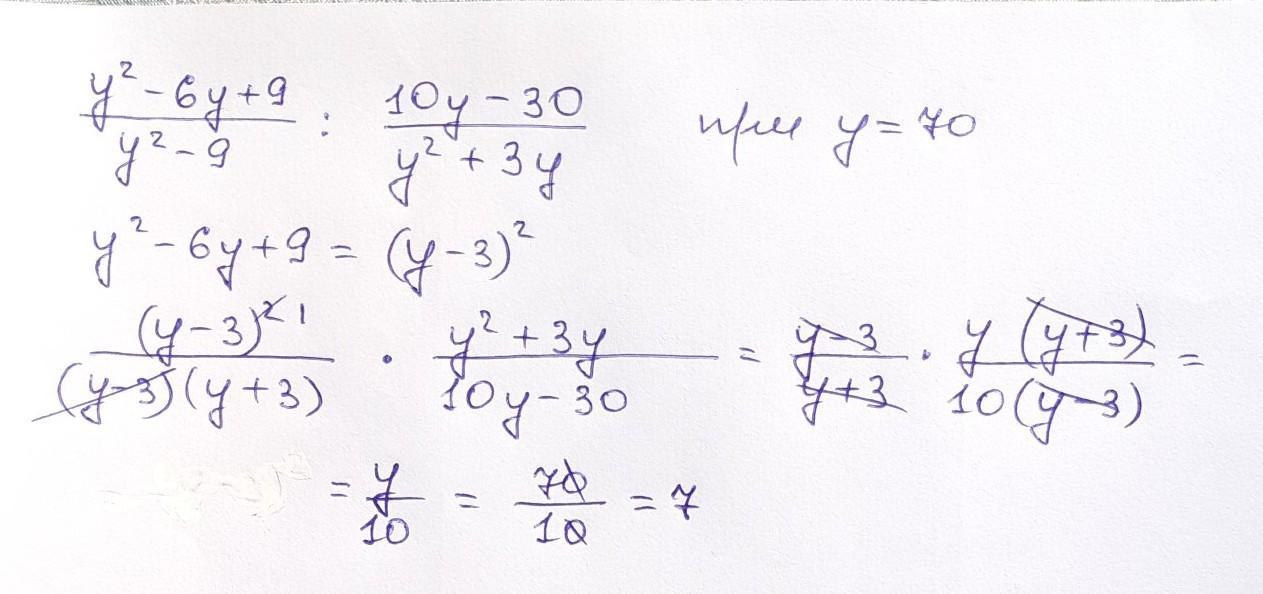 (y² - 6y + 9)/(y² - 9) : (10y - 30)/(y² + 3y) при y = 70
y² - 6y + 9 = (y - 3)²
(y - 3)² ¹/((y - 3)(y + 3)) · (y² + 3y)/(10y - 30) = (y - 3)/(y + 3) · y(y + 3)/(10(y - 3)) =
= y/10 = 70/10 = 7